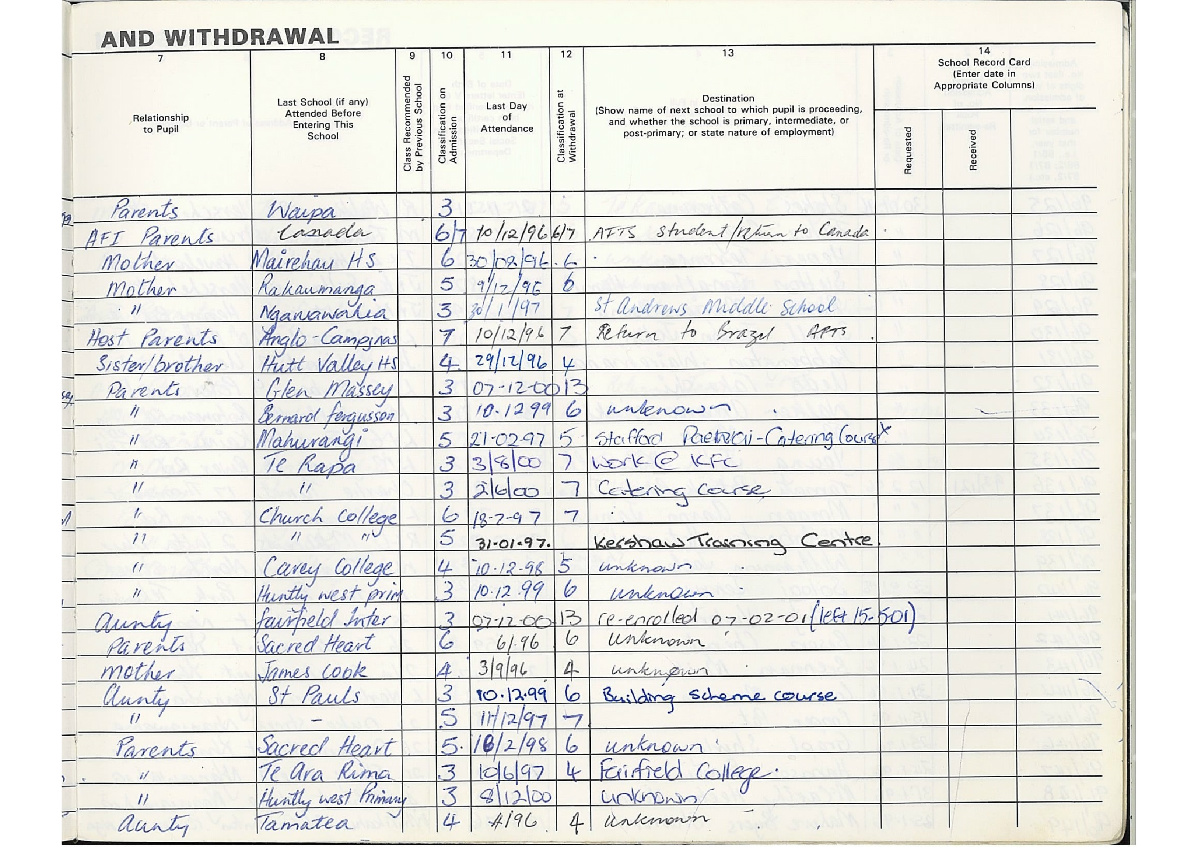 AND WITHDRAWAL
7 8 9 10 11 12 13 14
Relationship to Pupil
Last School (if any) Attended Before Entering This School
Class Recommended by Previous School
Classification on Admission
Last Day of Attendance
Classification at Withdrawal
Destination (Show name of next school to which pupil is proceeding, and whether the school is primary, intermediate, or post-primary; or state nature of employment)
School Record Card (Enter date in Appropriate Columns)
Requested
Received
Parents Waipa 3
AFI Parents Canada 6/7 10/12/96 6/7 AFTS student/return to Canada
Mother Mairehau HS 6 30/02/96 6
Mother Rakaumanga 5 9/12/96 6
" Ngaruawahia 3 30/1/97 St Andrews Middle School
Host Parents Anglo-Campinas 7 10/12/96 7 Return to Brazil AFTS
Sister/brother Hutt Valley HS 4 29/12/96 4
Parents Glen Massey 3 07-12-00 13
" Bernard fergusson 3 10.12 99 6 unknown
" Mahurangi 5 21.02.97 5 Stafford -Catering Course
" Te Rapa 3 3/8/00 7 Work @ KFC
" " 3 2/6/00 7 Catering course
" Church College 6 18-2-97 7
" " " 5 31-01-97. Kershaw Training Centre.
" Carey College 4 10.12.98 5 unknown
" Huntly west prim 3 10.12.99 6 unknown
Aunty fairfield Inter 3 07-12-00 13 re-enrolled 07-02-01 (left 15-5-01)
Parents Sacred Heart 6 6/96 6 unknown
mother James Cook 4 3/9/96 4 unknown
Aunty St Pauls 3 10.12.99 6 Building scheme course
" – 5 11/12/97 7
Parents Sacred Heart 5 /2/98 6 unknown
" Te Ara Rima 3 10/6/97 4 Fairfield College.
" Huntly west Primary 3 8/12/00 unknown
Aunty Tamatea 4 /96 4 unknown